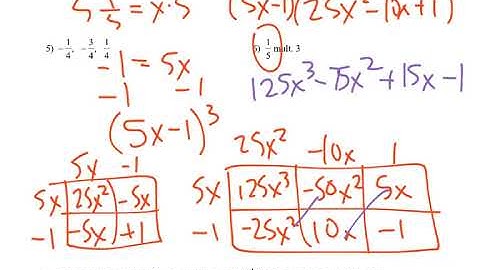 5 1/5 = x·5 (5x-1)(25x²-10x+1)
5) -1/4, -3/4, 1/4
6) 1/5 mult. 3
-1 = 5x
-1 -1
125x³-75x²+15x-1
(5x-1)³
25x² -10x 1
5x -1
5x 25x² -5x
-1 -5x +1
5x 125x³ -50x² 5x
-1 -25x² 10x -1